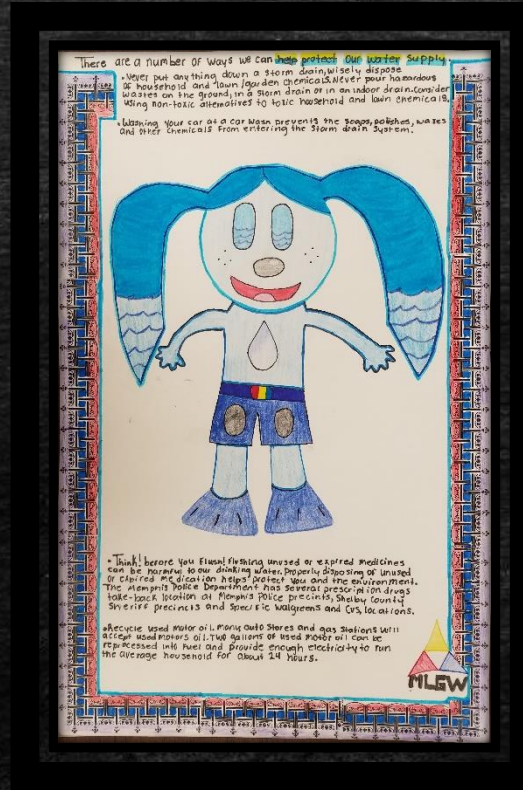 There are a number of ways we can help protect our water supply.
• Never put anything down a storm drain, wisely dispose
of household and lawn/garden chemicals. Never pour hazardous
wastes on the ground, in a storm drain or in an indoor drain. Consider
using non-toxic alternatives to toxic household and lawn chemicals.
• Washing your car at a car wash prevents the soaps, polishes, waxes
and other chemicals from entering the storm drain system.
• Think! before you flush! flushing unused or expired medicines
can be harmful to our drinking water. Properly disposing of unused
or expired medication helps protect you and the environment.
The Memphis Police Department has several prescription drugs
take-back location at Memphis Police precincts, Shelby County
Sheriff precincts and specific Walgreens and CVS, locations.
• Recycle used motor oil. Many auto stores and gas stations will
accept used motors oil. Two gallons of used motor oil can be
reprocessed into fuel and provide enough electricity to run
the average household for about 24 hours.
MLGW